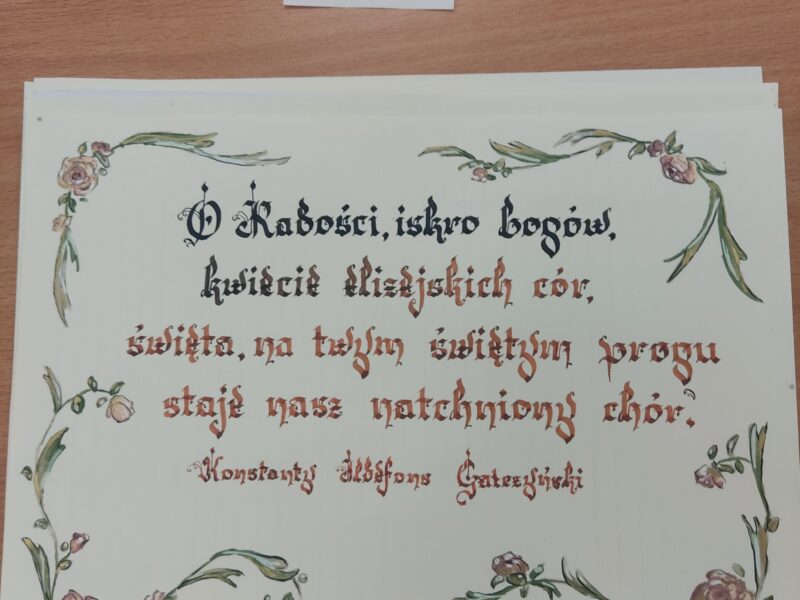 O Radości, iskro bogów,
kwiecie elizejskich cór,
święta, na twym świętym progu
staje nasz natchniony chór.
Konstanty Ildefons Gałczyński